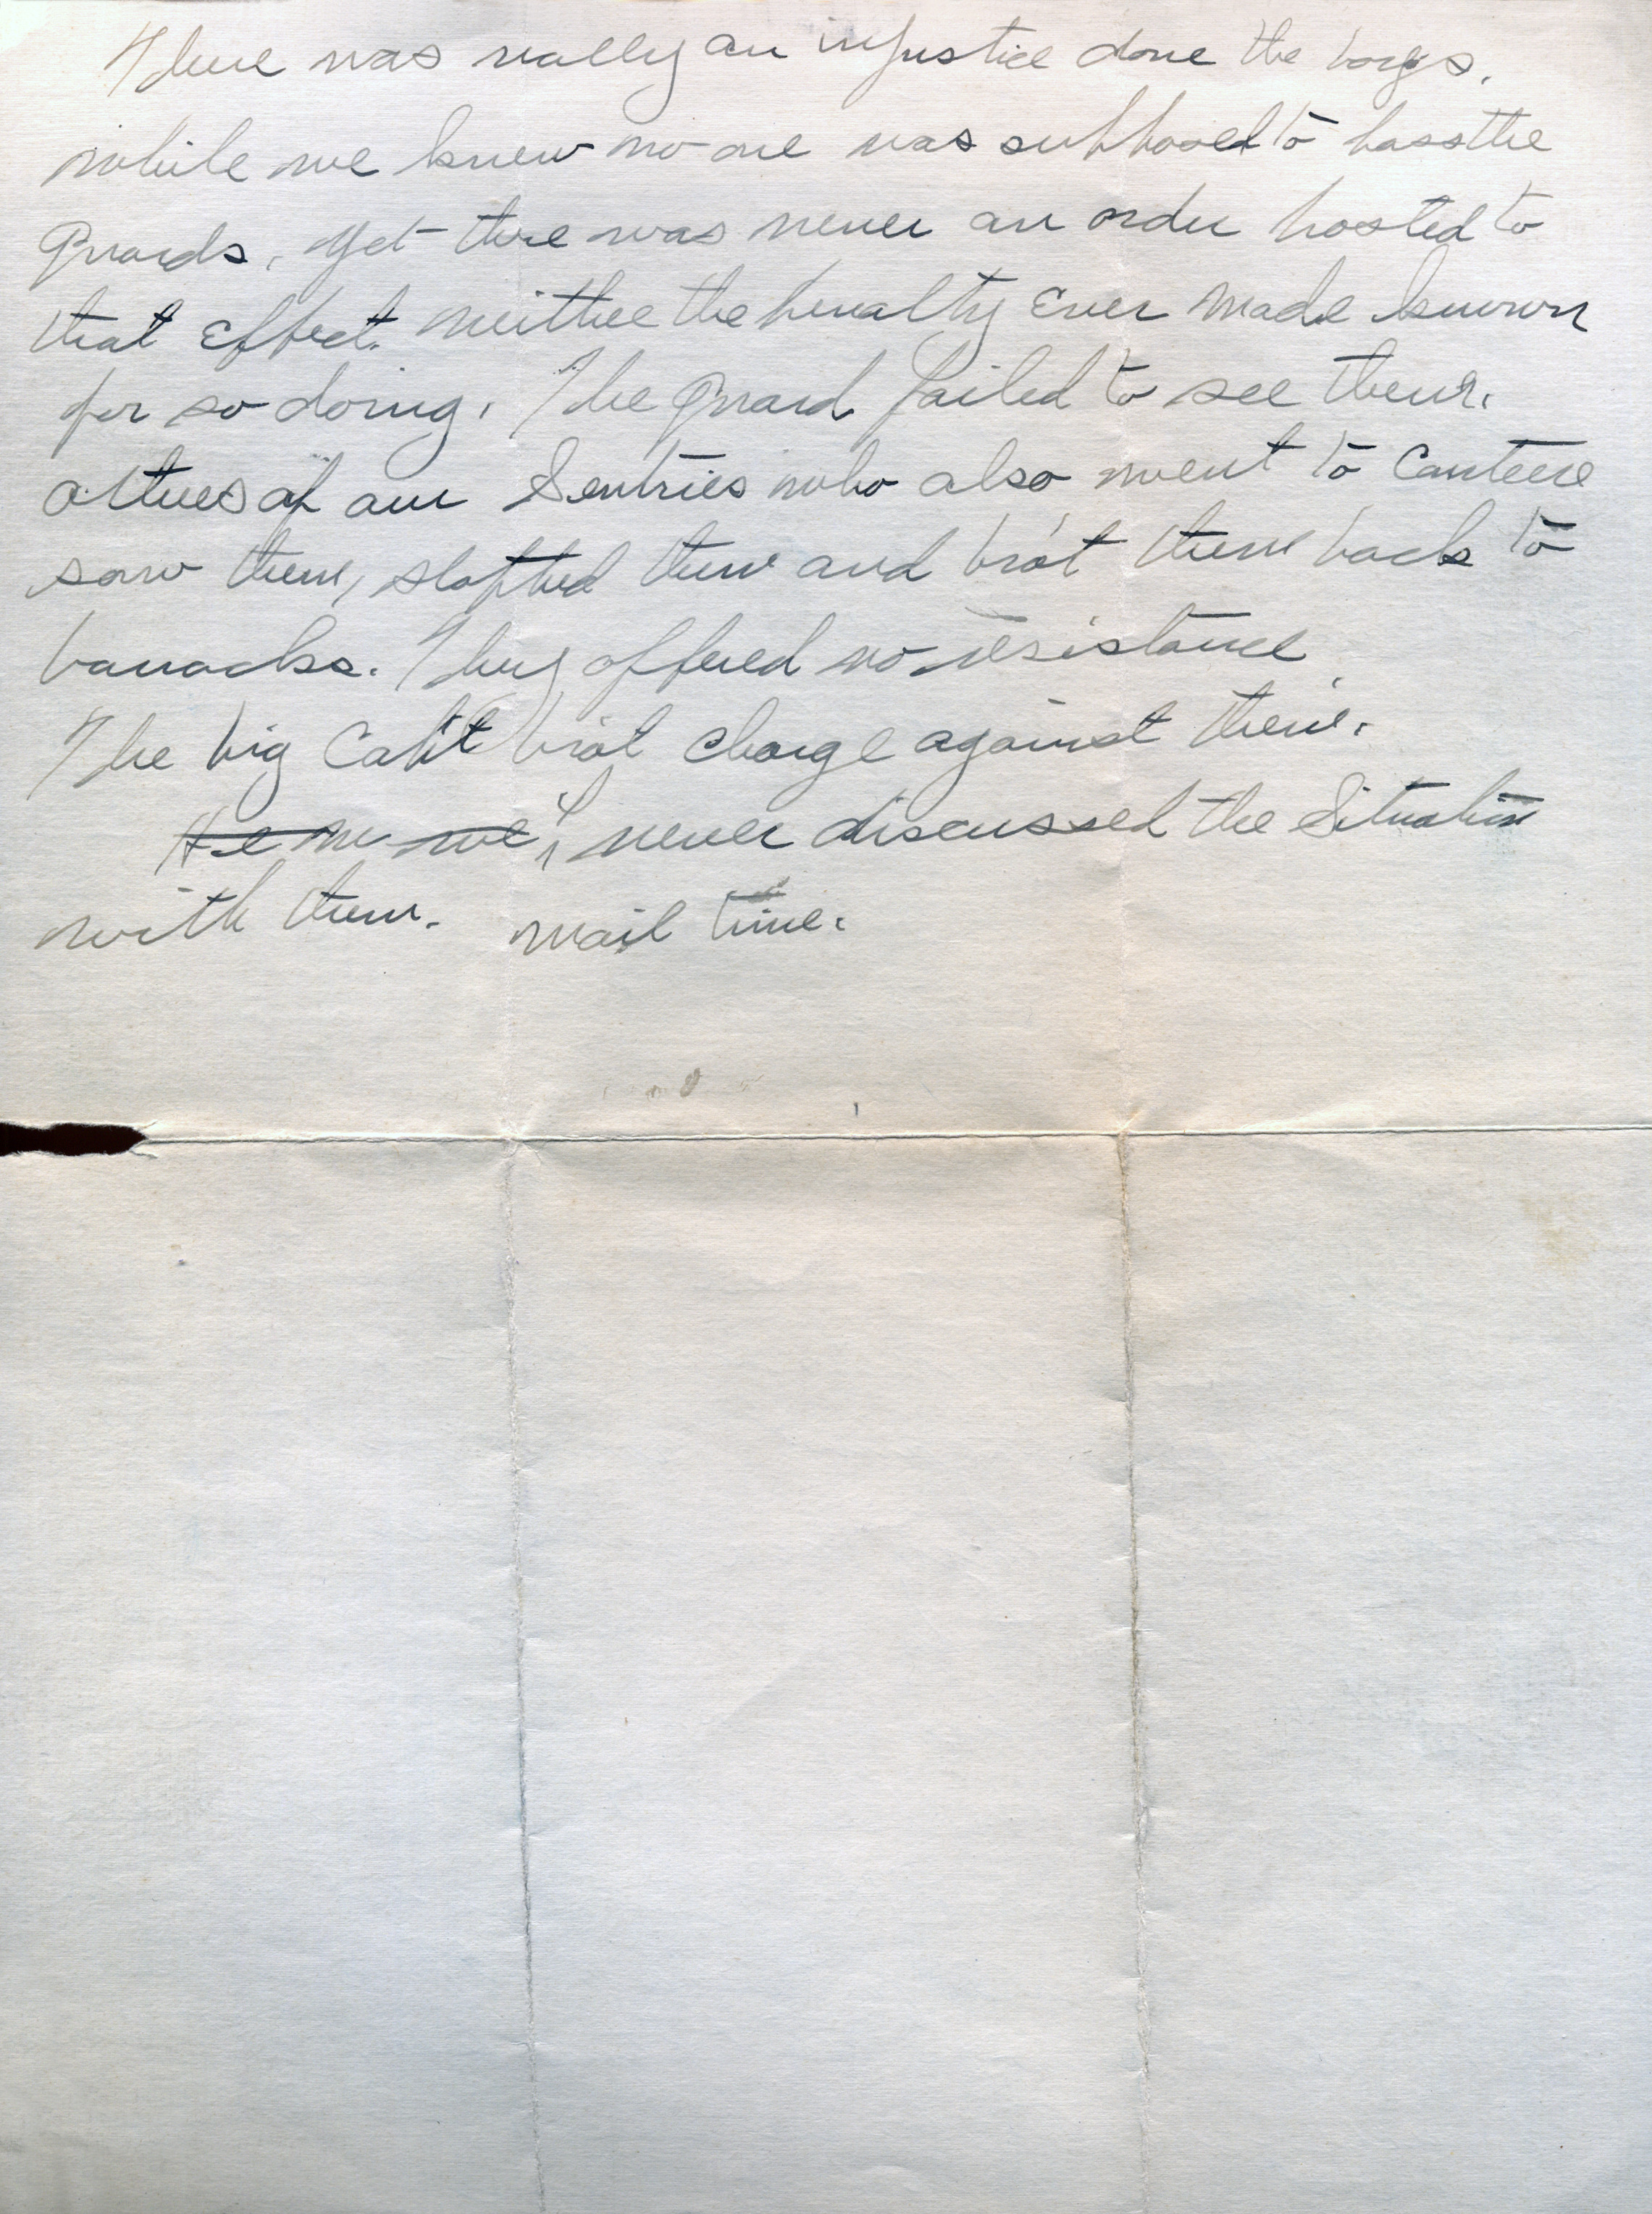 There was really an injustice done the boys.
while we knew no one was supposed to pass the
Guards, yet there was never an order posted to
that effect. neither the penalty ever made known
for so doing. The Guard failed to see them.
others of our Sentries who also went to Canteen
saw them, stopped them and bro't them back to
barracks. They offered no resistance.
The big Capt bro't charge against them.
He nor we I never discussed the Situation
with them. mail time.